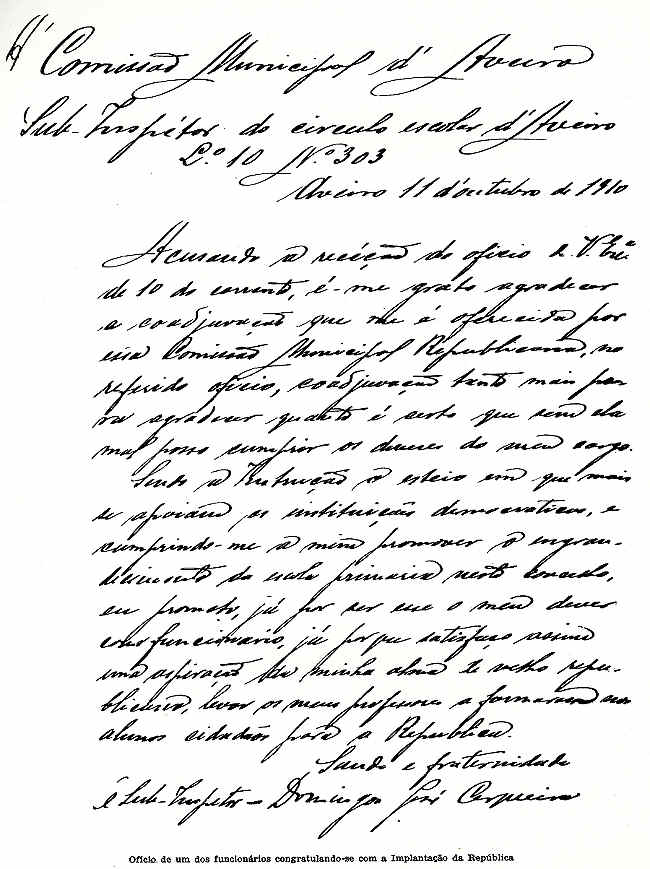 Á Comissão Municipal d'Aveiro
Sub-Inspétor do circulo escolar d'Aveiro
L.º 10 N.º 303
Aveiro 11 d'outubro de 1910
Acusando a recéção do oficio de V. Ex.ª
de 10 do corrente, é-me grato agradecer
a coadjuvação que me é oferecida por
essa Comissão Municipal Republicana, no
referido oficio, coadjuvação tanto mais pa-
ra agradecer quanto é certo que sem ela
mal posso cumprir os deveres do meu cargo.
Sendo a Instrução o esteio em que mais
se apoiam as instituições democraticas, e
cumprindo-me a mim promover o engran-
decimento da escola primaria neste concelho,
eu prometo, já por ser esse o meu dever
como funcionario, já porque satisfaço assim
uma aspiração da minha alma de velho repu-
blicano, levar os meus professores a formarem nos
alunos cidadãos para a Republica.
Saude e fraternidade
O Sub-Inspetor - Domingos José Cerqueira
Ofício de um dos funcionários congratulando-se com a Implantação da República